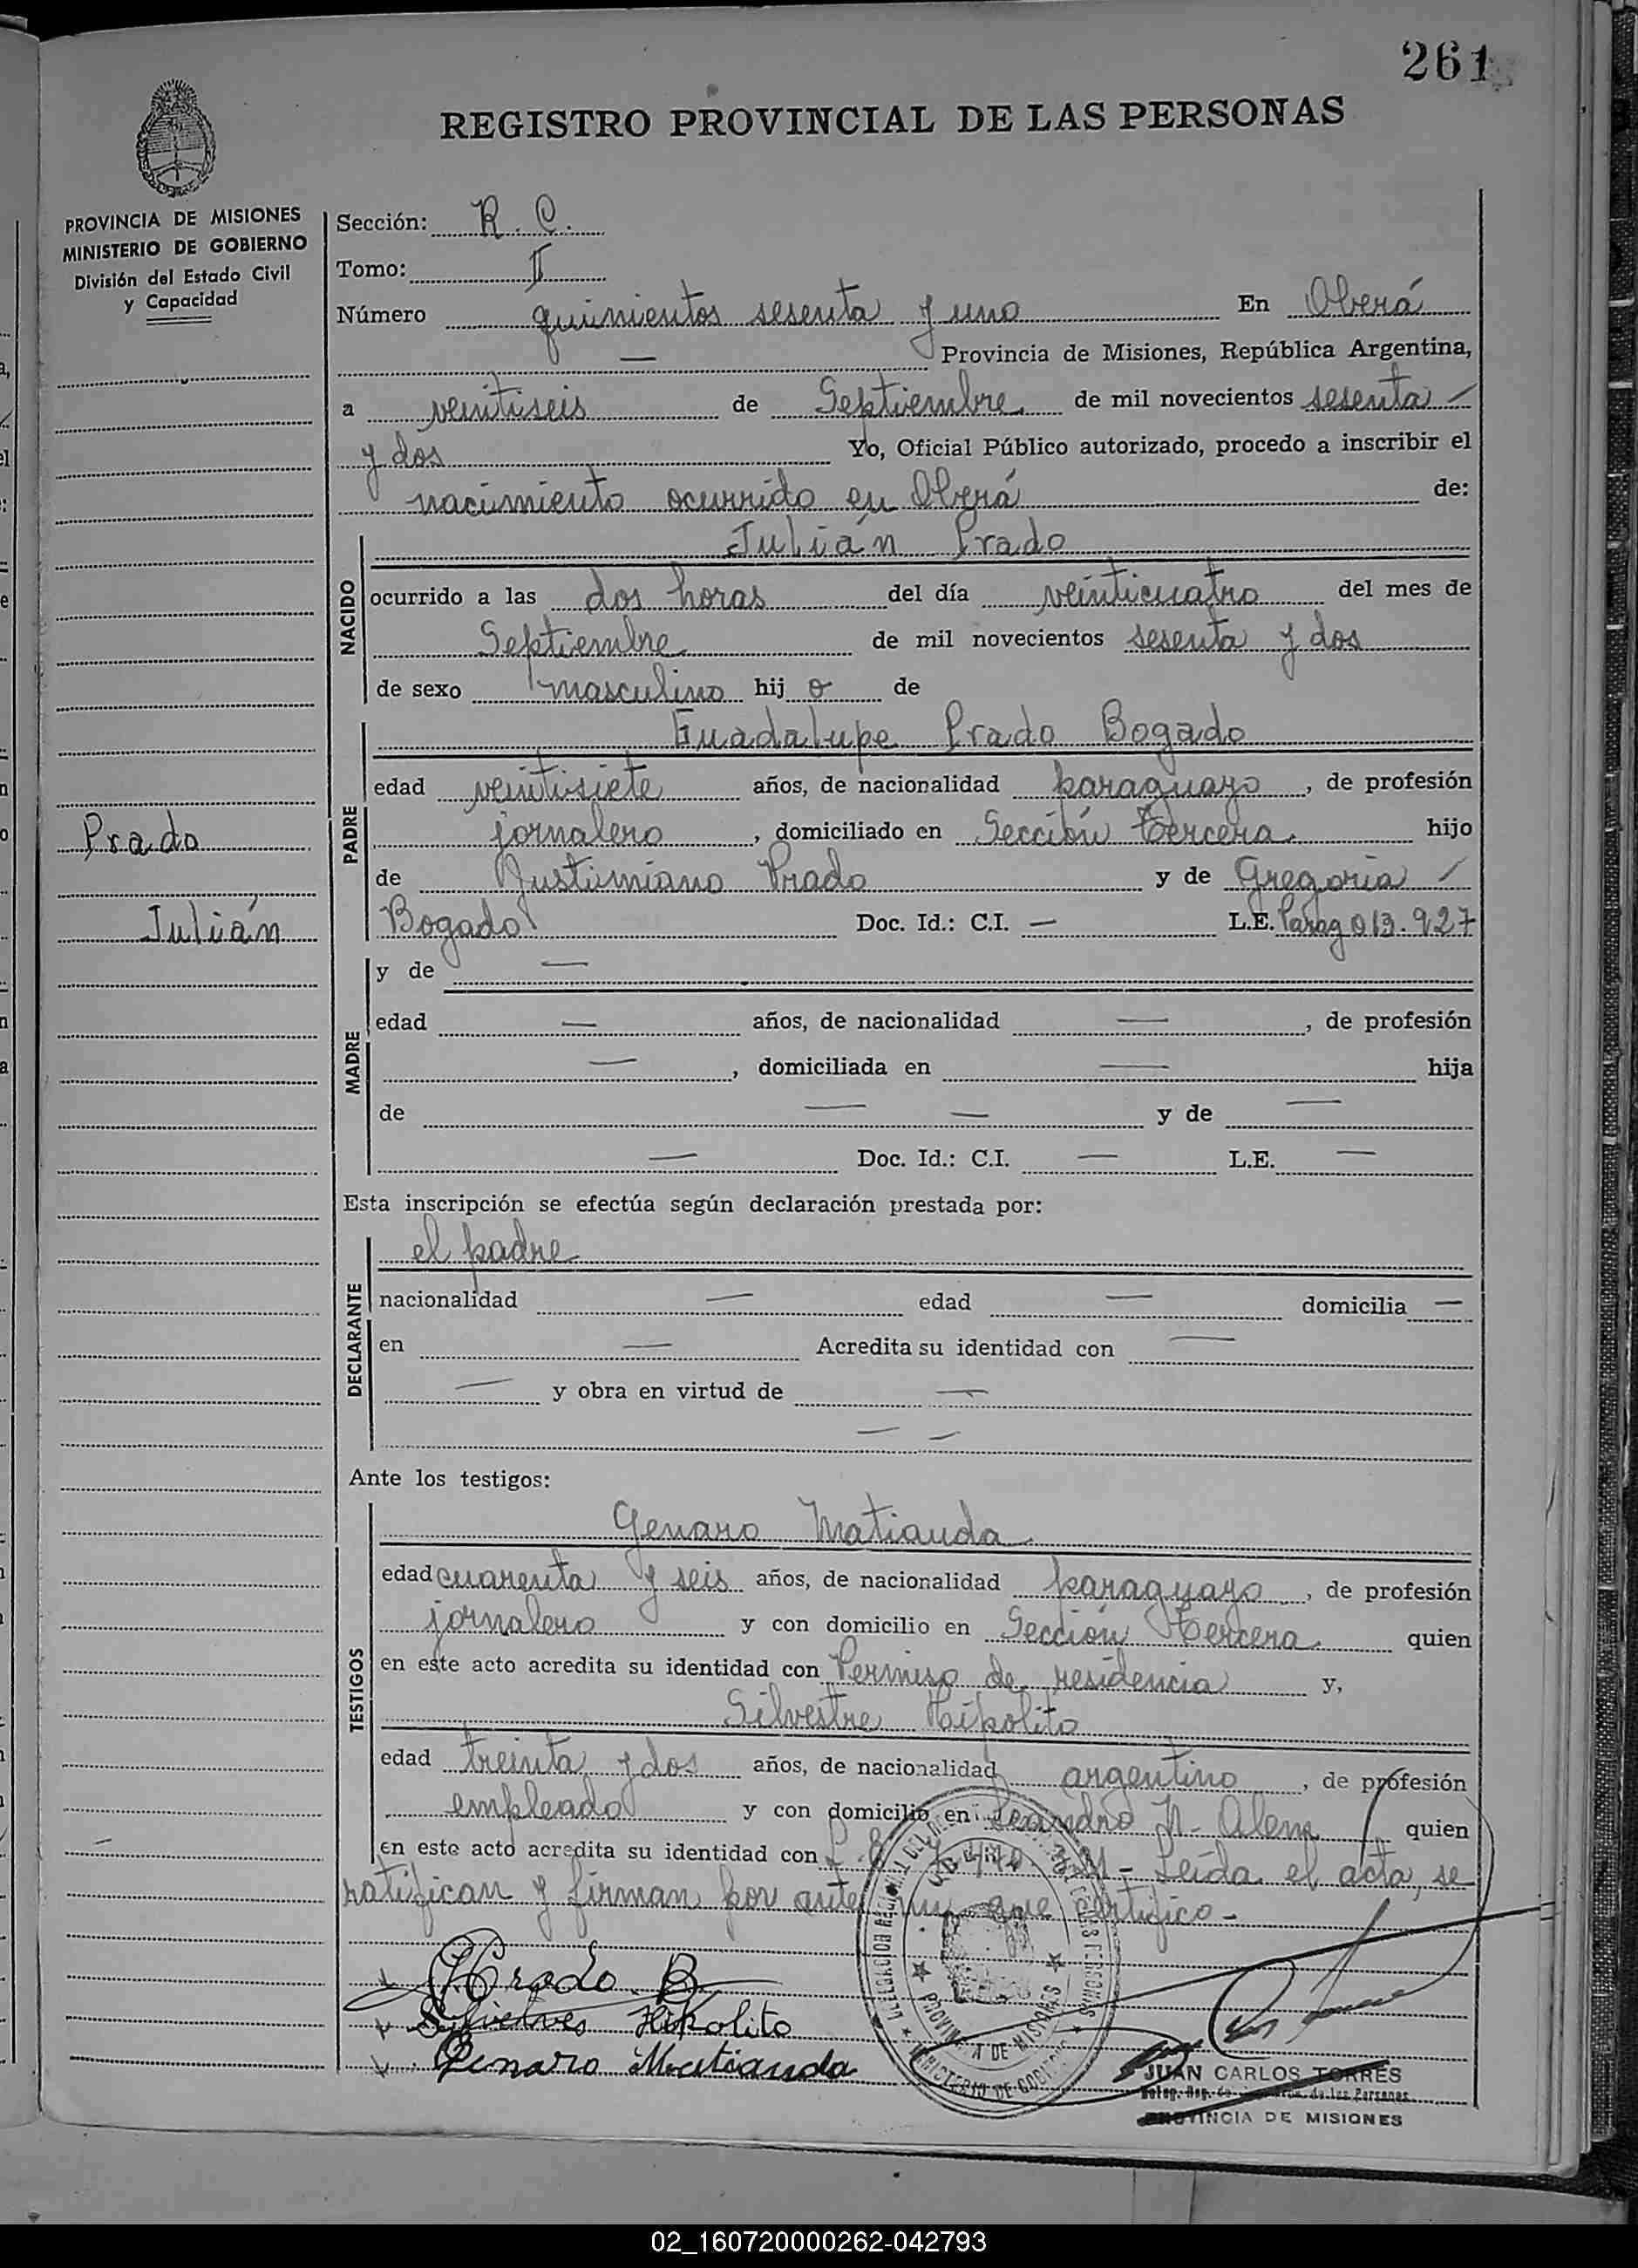 261
REGISTRO PROVINCIAL DE LAS PERSONAS
PROVINCIA DE MISIONES
MINISTERIO DE GOBIERNO
División del Estado Civil
y Capacidad
Sección: R. C.
Tomo: II
Número quinientos sesenta y uno En Oberá
— Provincia de Misiones, República Argentina,
a veintiseis de Septiembre de mil novecientos sesenta —
y dos Yo, Oficial Público autorizado, procedo a inscribir el
nacimiento ocurrido en Oberá de:
NACIDO
Julián Prado
ocurrido a las dos horas del día veinticuatro del mes de
Septiembre de mil novecientos sesenta y dos
de sexo masculino hij o de
PADRE
Guadalupe Prado Bogado
edad veintisiete años, de nacionalidad paraguayo, de profesión
jornalero, domiciliado en Sección Tercera hijo
de Justiniano Prado y de Gregoria —
Bogado Doc. Id.: C.I. — L.E. Parag 013.927
Prado
Julián
MADRE
y de —
edad — años, de nacionalidad —, de profesión
—, domiciliada en — hija
de — — y de —
— Doc. Id.: C.I. — L.E. —
Esta inscripción se efectúa según declaración prestada por:
DECLARANTE
el padre
nacionalidad — edad — domicilia —
en — Acredita su identidad con —
— y obra en virtud de —
— —
Ante los testigos:
TESTIGOS
Genaro Matiauda
edad cuarenta y seis años, de nacionalidad paraguayo, de profesión
jornalero y con domicilio en Sección Tercera quien
en este acto acredita su identidad con Permiso de residencia y,
Silvestre Hipolito
edad treinta y dos años, de nacionalidad argentino, de profesión
empleado y con domicilio en Leandro N. Alem quien
en este acto acredita su identidad con L.E. — Leída el acta, se
ratifican y firman por ante mi que certifico -
Prado B
Silvestres Hipolito
Genaro Matiauda
PROVINCIA DE MISIONES
MINISTERIO DE GOBIERNO
JUAN CARLOS TORRES
de las Personas
PROVINCIA DE MISIONES
02_160720000262-042793